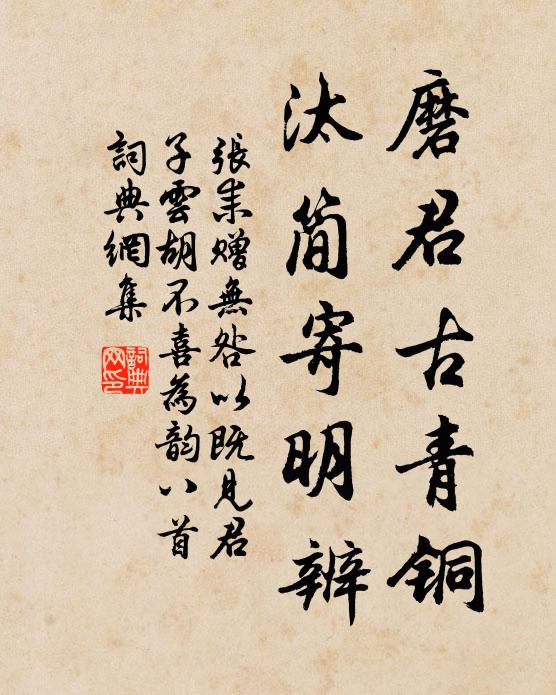 磨君古青铜
汰简寄明辨
張耒贈無咎以既見君
子雲胡不喜為韵八首
詞典網集
詞典網印